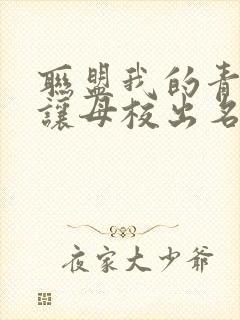 聯盟我的青
讓母校出名
夜家大少爺